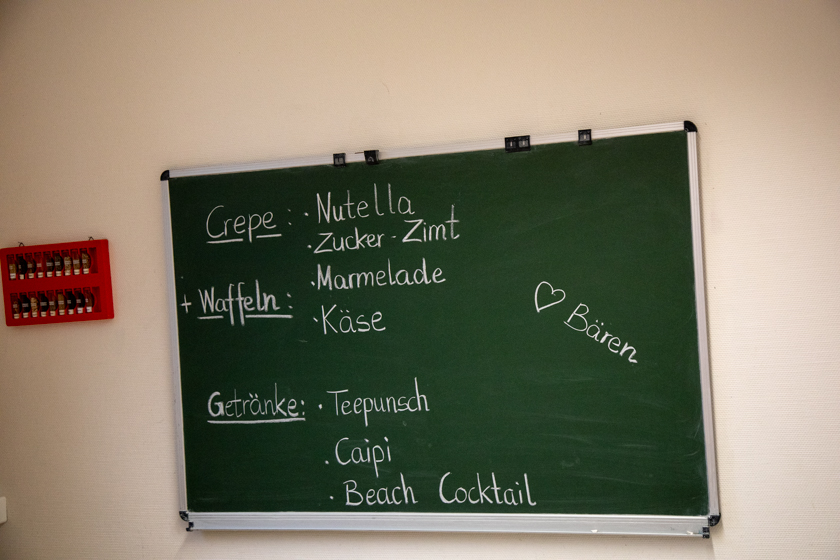 Crepe : · Nutella
· Zucker - Zimt
+ Waffeln : · Marmelade
· Käse
♡ Bären
Getränke : · Teepunsch
· Caipi
· Beach Cocktail